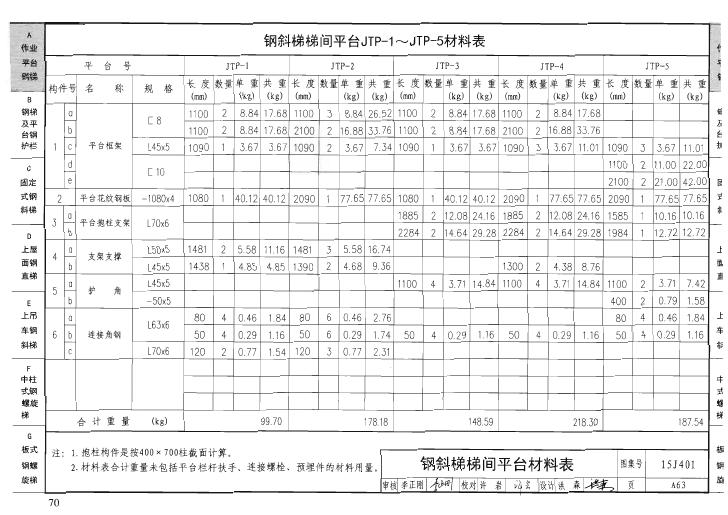 钢斜梯梯间平台JTP-1～JTP-5材料表
平台号 JTP-1 JTP-2 JTP-3 JTP-4 JTP-5
构件号 名称 规格 长度(mm) 数量 单重(kg) 共重(kg) 长度(mm) 数量 单重(kg) 共重(kg) 长度(mm) 数量 单重(kg) 共重(kg) 长度(mm) 数量 单重(kg) 共重(kg) 长度(mm) 数量 单重(kg) 共重(kg)
1 平台框架
a [8 1100 2 8.84 17.68 1100 3 8.84 26.52 1100 2 8.84 17.68 1100 2 8.84 17.68
b 1100 2 8.84 17.68 2100 2 16.88 33.76 1100 2 8.84 17.68 2100 2 16.88 33.76
c L45x5 1090 1 3.67 3.67 1090 2 3.67 7.34 1090 1 3.67 3.67 1090 3 3.67 11.01 1090 3 3.67 11.01
d [10 1100 2 11.00 22.00
e 2100 2 21.00 42.00
2 平台花纹钢板 -1080x4 1080 1 40.12 40.12 2090 1 77.65 77.65 1080 1 40.12 40.12 2090 1 77.65 77.65 2090 1 77.65 77.65
3 平台抱柱支架 L70x6
a 1885 2 12.08 24.16 1885 2 12.08 24.16 1585 1 10.16 10.16
b 2284 2 14.64 29.28 2284 2 14.64 29.28 1984 1 12.72 12.72
4 支架支撑
a L50x5 1481 2 5.58 11.16 1481 3 5.58 16.74
b L45x5 1438 1 4.85 4.85 1390 2 4.68 9.36 1300 2 4.38 8.76
5 护角
a L45x5 1100 4 3.71 14.84 1100 4 3.71 14.84 1100 2 3.71 7.42
b -50x5 400 2 0.79 1.58
6 连接角钢
a L63x6 80 4 0.46 1.84 80 6 0.46 2.76 80 4 0.46 1.84
b 50 4 0.29 1.16 50 6 0.29 1.74 50 4 0.29 1.16 50 4 0.29 1.16 50 4 0.29 1.16
c L70x6 120 2 0.77 1.54 120 3 0.77 2.31
合计重量 (kg) 99.70 178.18 148.59 218.30 187.54
注: 1. 抱柱构件是按400×700柱截面计算。
2. 材料表合计重量未包括平台栏杆扶手、连接螺栓、预埋件的材料用量。
钢斜梯梯间平台材料表 图集号 15J401
审核 李正刚 校对 许岩 设计 洪森 页 A63
70
A
作业
平台
钢梯
B
钢梯
及平
台钢
护栏
C
固定
式钢
斜梯
D
上屋
面钢
直梯
E
上吊
车钢
斜梯
F
中柱
式钢
螺旋
梯
G
板式
钢螺
旋梯